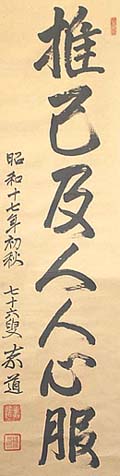 推己及人人心服
昭和十七年初秋
七十六叟